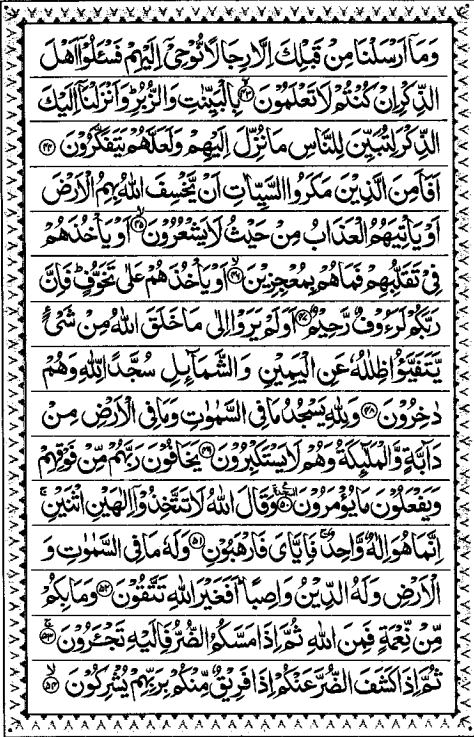 وَمَاۤ اَرْسَلْنَا مِنْ قَبْلِكَ اِلَّا رِجَالًا نُّوْحِیْۤ اِلَیْهِمْ فَسْـَٔلُوْۤا اَهْلَ
الذِّكْرِ اِنْ كُنْتُمْ لَا تَعْلَمُوْنَ ﴿۴۳﴾ بِالْبَیِّنٰتِ وَالزُّبُرِ ؕ وَاَنْزَلْنَاۤ اِلَیْكَ
الذِّكْرَ لِتُبَیِّنَ لِلنَّاسِ مَا نُزِّلَ اِلَیْهِمْ وَلَعَلَّهُمْ یَتَفَكَّرُوْنَ ﴿۴۴﴾
اَفَاَمِنَ الَّذِیْنَ مَكَرُوا السَّیِّاٰتِ اَنْ یَّخْسِفَ اللّٰهُ بِهِمُ الْاَرْضَ
اَوْ یَاْتِیَهُمُ الْعَذَابُ مِنْ حَیْثُ لَا یَشْعُرُوْنَ ﴿۴۵﴾ اَوْ یَاْخُذَهُمْ
فِیْ تَقَلُّبِهِمْ فَمَا هُمْ بِمُعْجِزِیْنَ ﴿۴۶﴾ اَوْ یَاْخُذَهُمْ عَلٰی تَخَوُّفٍ ؕ فَاِنَّ
رَبَّكُمْ لَرَءُوْفٌ رَّحِیْمٌ ﴿۴۷﴾ اَوَلَمْ یَرَوْا اِلٰی مَا خَلَقَ اللّٰهُ مِنْ شَیْءٍ
یَّتَفَیَّؤُا ظِلٰلُهٗ عَنِ الْیَمِیْنِ وَالشَّمَآىِٕلِ سُجَّدًا لِّلّٰهِ وَهُمْ
دٰخِرُوْنَ ﴿۴۸﴾ وَلِلّٰهِ یَسْجُدُ مَا فِی السَّمٰوٰتِ وَمَا فِی الْاَرْضِ مِنْ
دَآبَّةٍ وَّالْمَلٰٓىِٕكَةُ وَهُمْ لَا یَسْتَكْبِرُوْنَ ﴿۴۹﴾ یَخَافُوْنَ رَبَّهُمْ مِّنْ فَوْقِهِمْ
وَیَفْعَلُوْنَ مَا یُؤْمَرُوْنَ ﴿۵۰﴾ وَقَالَ اللّٰهُ لَا تَتَّخِذُوْۤا اِلٰهَیْنِ اثْنَیْنِ ۚ
اِنَّمَا هُوَ اِلٰهٌ وَّاحِدٌ ۚ فَاِیَّایَ فَارْهَبُوْنِ ﴿۵۱﴾ وَلَهٗ مَا فِی السَّمٰوٰتِ وَ
الْاَرْضِ وَلَهُ الدِّیْنُ وَاصِبًا ؕ اَفَغَیْرَ اللّٰهِ تَتَّقُوْنَ ﴿۵۲﴾ وَمَا بِكُمْ
مِّنْ نِّعْمَةٍ فَمِنَ اللّٰهِ ثُمَّ اِذَا مَسَّكُمُ الضُّرُّ فَاِلَیْهِ تَجْـَٔرُوْنَ ﴿۵۳﴾
ثُمَّ اِذَا كَشَفَ الضُّرَّ عَنْكُمْ اِذَا فَرِیْقٌ مِّنْكُمْ بِرَبِّهِمْ یُشْرِكُوْنَ ﴿۵۴﴾